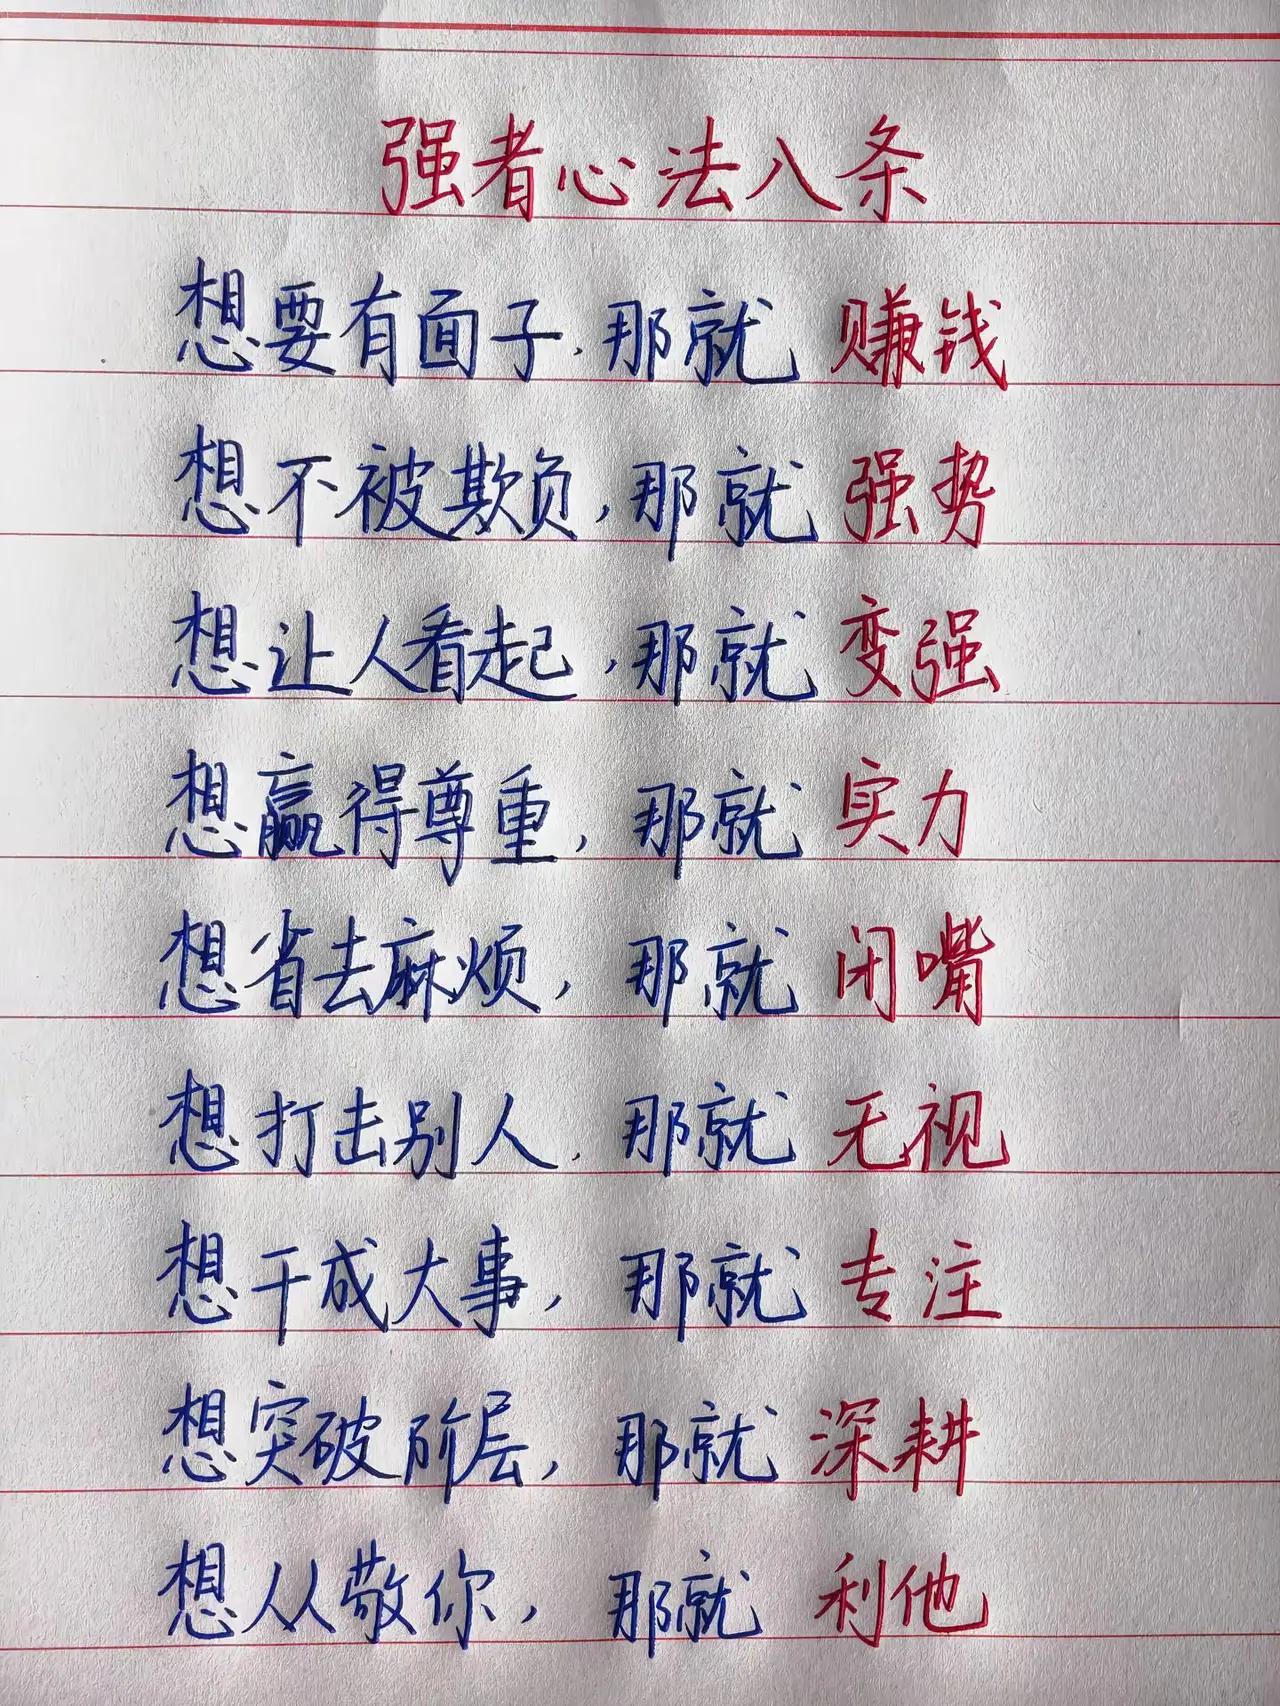 强者心法八条
想要有面子,那就 赚钱
想不被欺负,那就 强势
想让人看起,那就 变强
想赢得尊重,那就 实力
想省去麻烦,那就 闭嘴
想打击别人,那就 无视
想干成大事,那就 专注
想突破阶层,那就 深耕
想从敬你,那就 利他